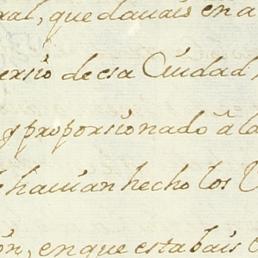 ral, que davais en a
ersió de esa Ciudad
y proporsionado â la
havian hecho los
ón, en que estabais